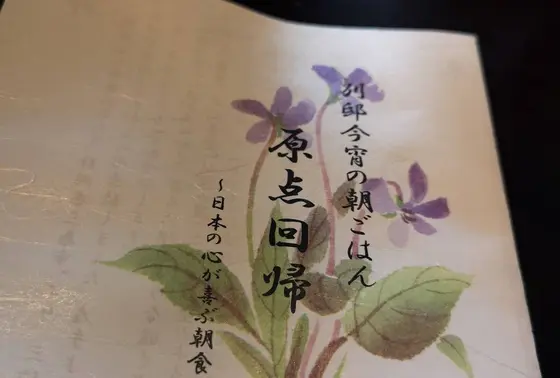 別邸今宵の朝ごはん
原点回帰
～日本の心が喜ぶ朝食